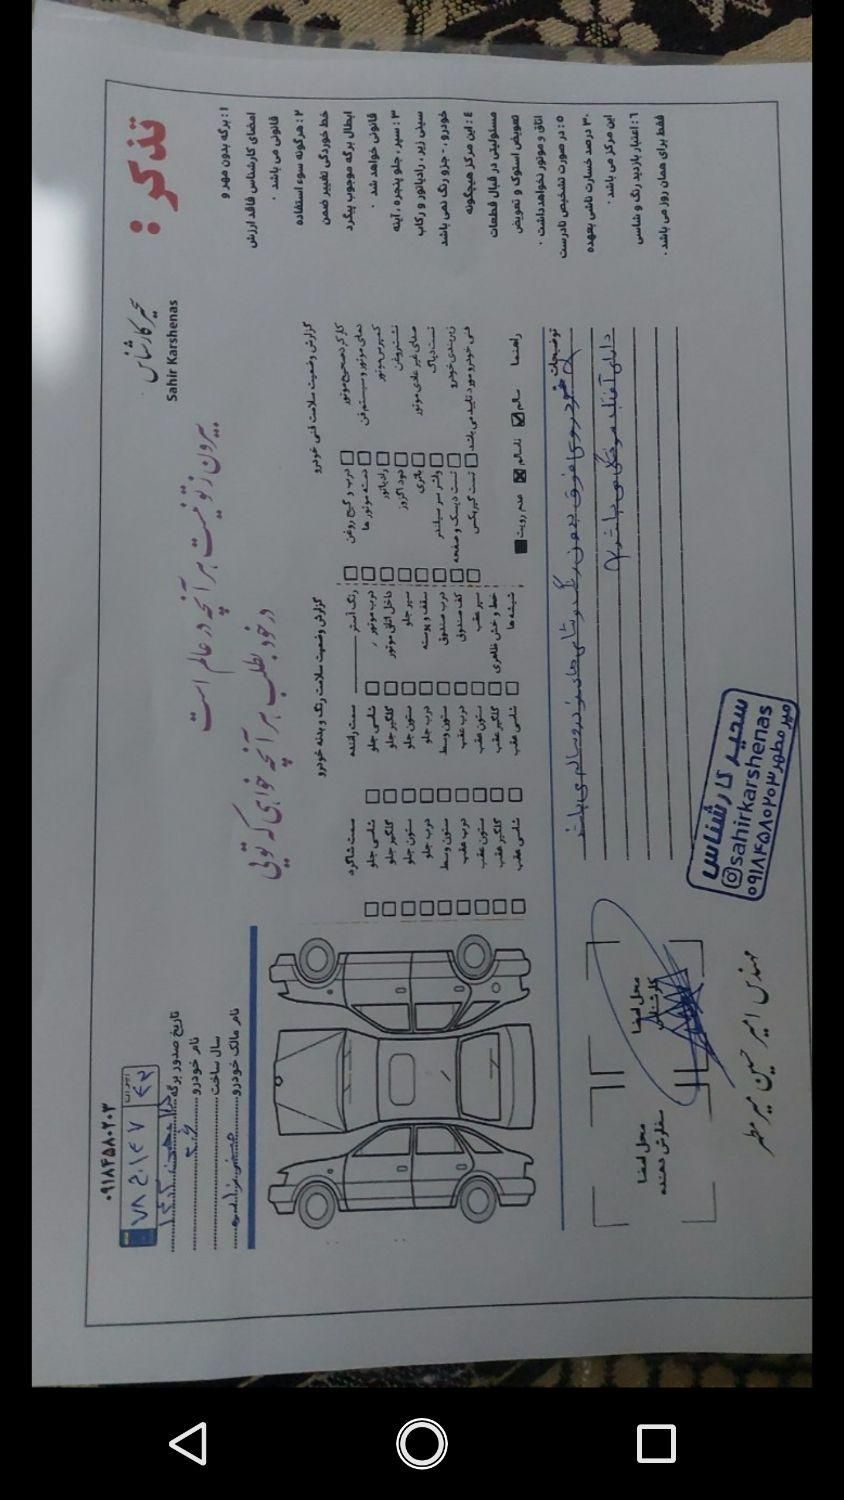 تذکر :
۱ : برگه بدون مهر و
امضای کارشناس فاقد ارزش
قانونی می باشد .
۲ : هرگونه سوء استفاده
خط خوردگی تغییر ضمن
ابطال برگه موجوب پیگرد
قانونی خواهد شد .
۳ : سپر ، جلو پنجره ، آینه
سینی زیر ، رادیاتور و رکاب
خودرو ، جزو رنگ نمی باشد
٤ : این مرکز هیچگونه
مسئولیتی در قبال قطعات
تعویض استوک و تعویض
اتاق و موتور نخواهد داشت .
۵ : در صورت تشخیص نادرست
۳۰ درصد خسارت ناشی بعهده
این مرکز می باشد .
٦ : اعتبار بازدید رنگ و شاسی
فقط برای همان روز می باشد .
Sahir Karshenas
بیرون ز تو نیست هر آنچه در عالم است
در خود بطلب هر آنچه خواهی که تویی
۰۹۱۸۴۵۸۰۲۰۳
تاریخ صدور برگه
نام خودرو
سال ساخت
نام مالک خودرو
گزارش وضعیت سلامت فنی خودرو
کارکرد صحیح موتور
نمای موتور و سیستم فن
کمپرس موتور
نشت روغن
صدای غیر عادی موتور
تست دیاگ
زیربندی خودرو
فنی خودرو مورد تایید می باشد
درب و گیج روغن
دسته موتور ها
رادیاتور
دود اگزوز
باتری
واشر سر سیلندر
تست دیسک و صفحه
تست گیربکس
راهنما سالم ناسالم عدم رویت
گزارش وضعیت سلامت رنگ و بدنه خودرو
رنگ آستر
درب موتور
داخل اتاق موتور
سپر جلو
سقف و پوسته
درب صندوق
کف صندوق
سپر عقب
خط و خش ظاهری
شیشه ها
سمت راننده
شاسی جلو
گلگیر جلو
ستون جلو
درب جلو
ستون وسط
درب عقب
ستون عقب
گلگیر عقب
شاسی عقب
سمت شاگرد
شاسی جلو
گلگیر جلو
ستون جلو
درب جلو
ستون وسط
درب عقب
ستون عقب
گلگیر عقب
شاسی عقب
توضیحات
محل امضا
کارشناس
محل امضا
سفارش دهنده
@sahirkarshenas
میر مطهر ۰۹۱۸۴۵۸۰۲۰۳
مهندس امیر حسین میر مطهر